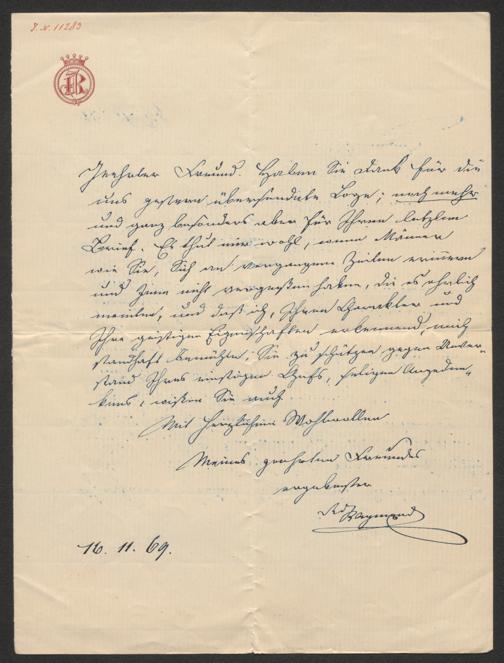 J. N. 11283
R
Geehrter Freund. Haben Sie Dank für die
uns gestern übersendete Loge; noch mehr
und ganz besonders aber für Ihren letzten
Brief. Es thut mir wohl, wenn Männer
wie Sie, Sich an vergangene Zeiten erinnern
und Jene nicht vergeßen haben, die es ehrlich
meinten, und daß ich, Ihren Charakter und
Ihre geistigen Eigenschaften erkennend, mich
standhaft bemühte, Sie zu schützen gegen Unver-
stand Ihres einstigen Chefs, seligen Angeden-
kens, wißen Sie auch
Mit herzlichem Wohlwollen
Meines geehrten Freundes
ergebenster
Raymond
16. 11. 69.